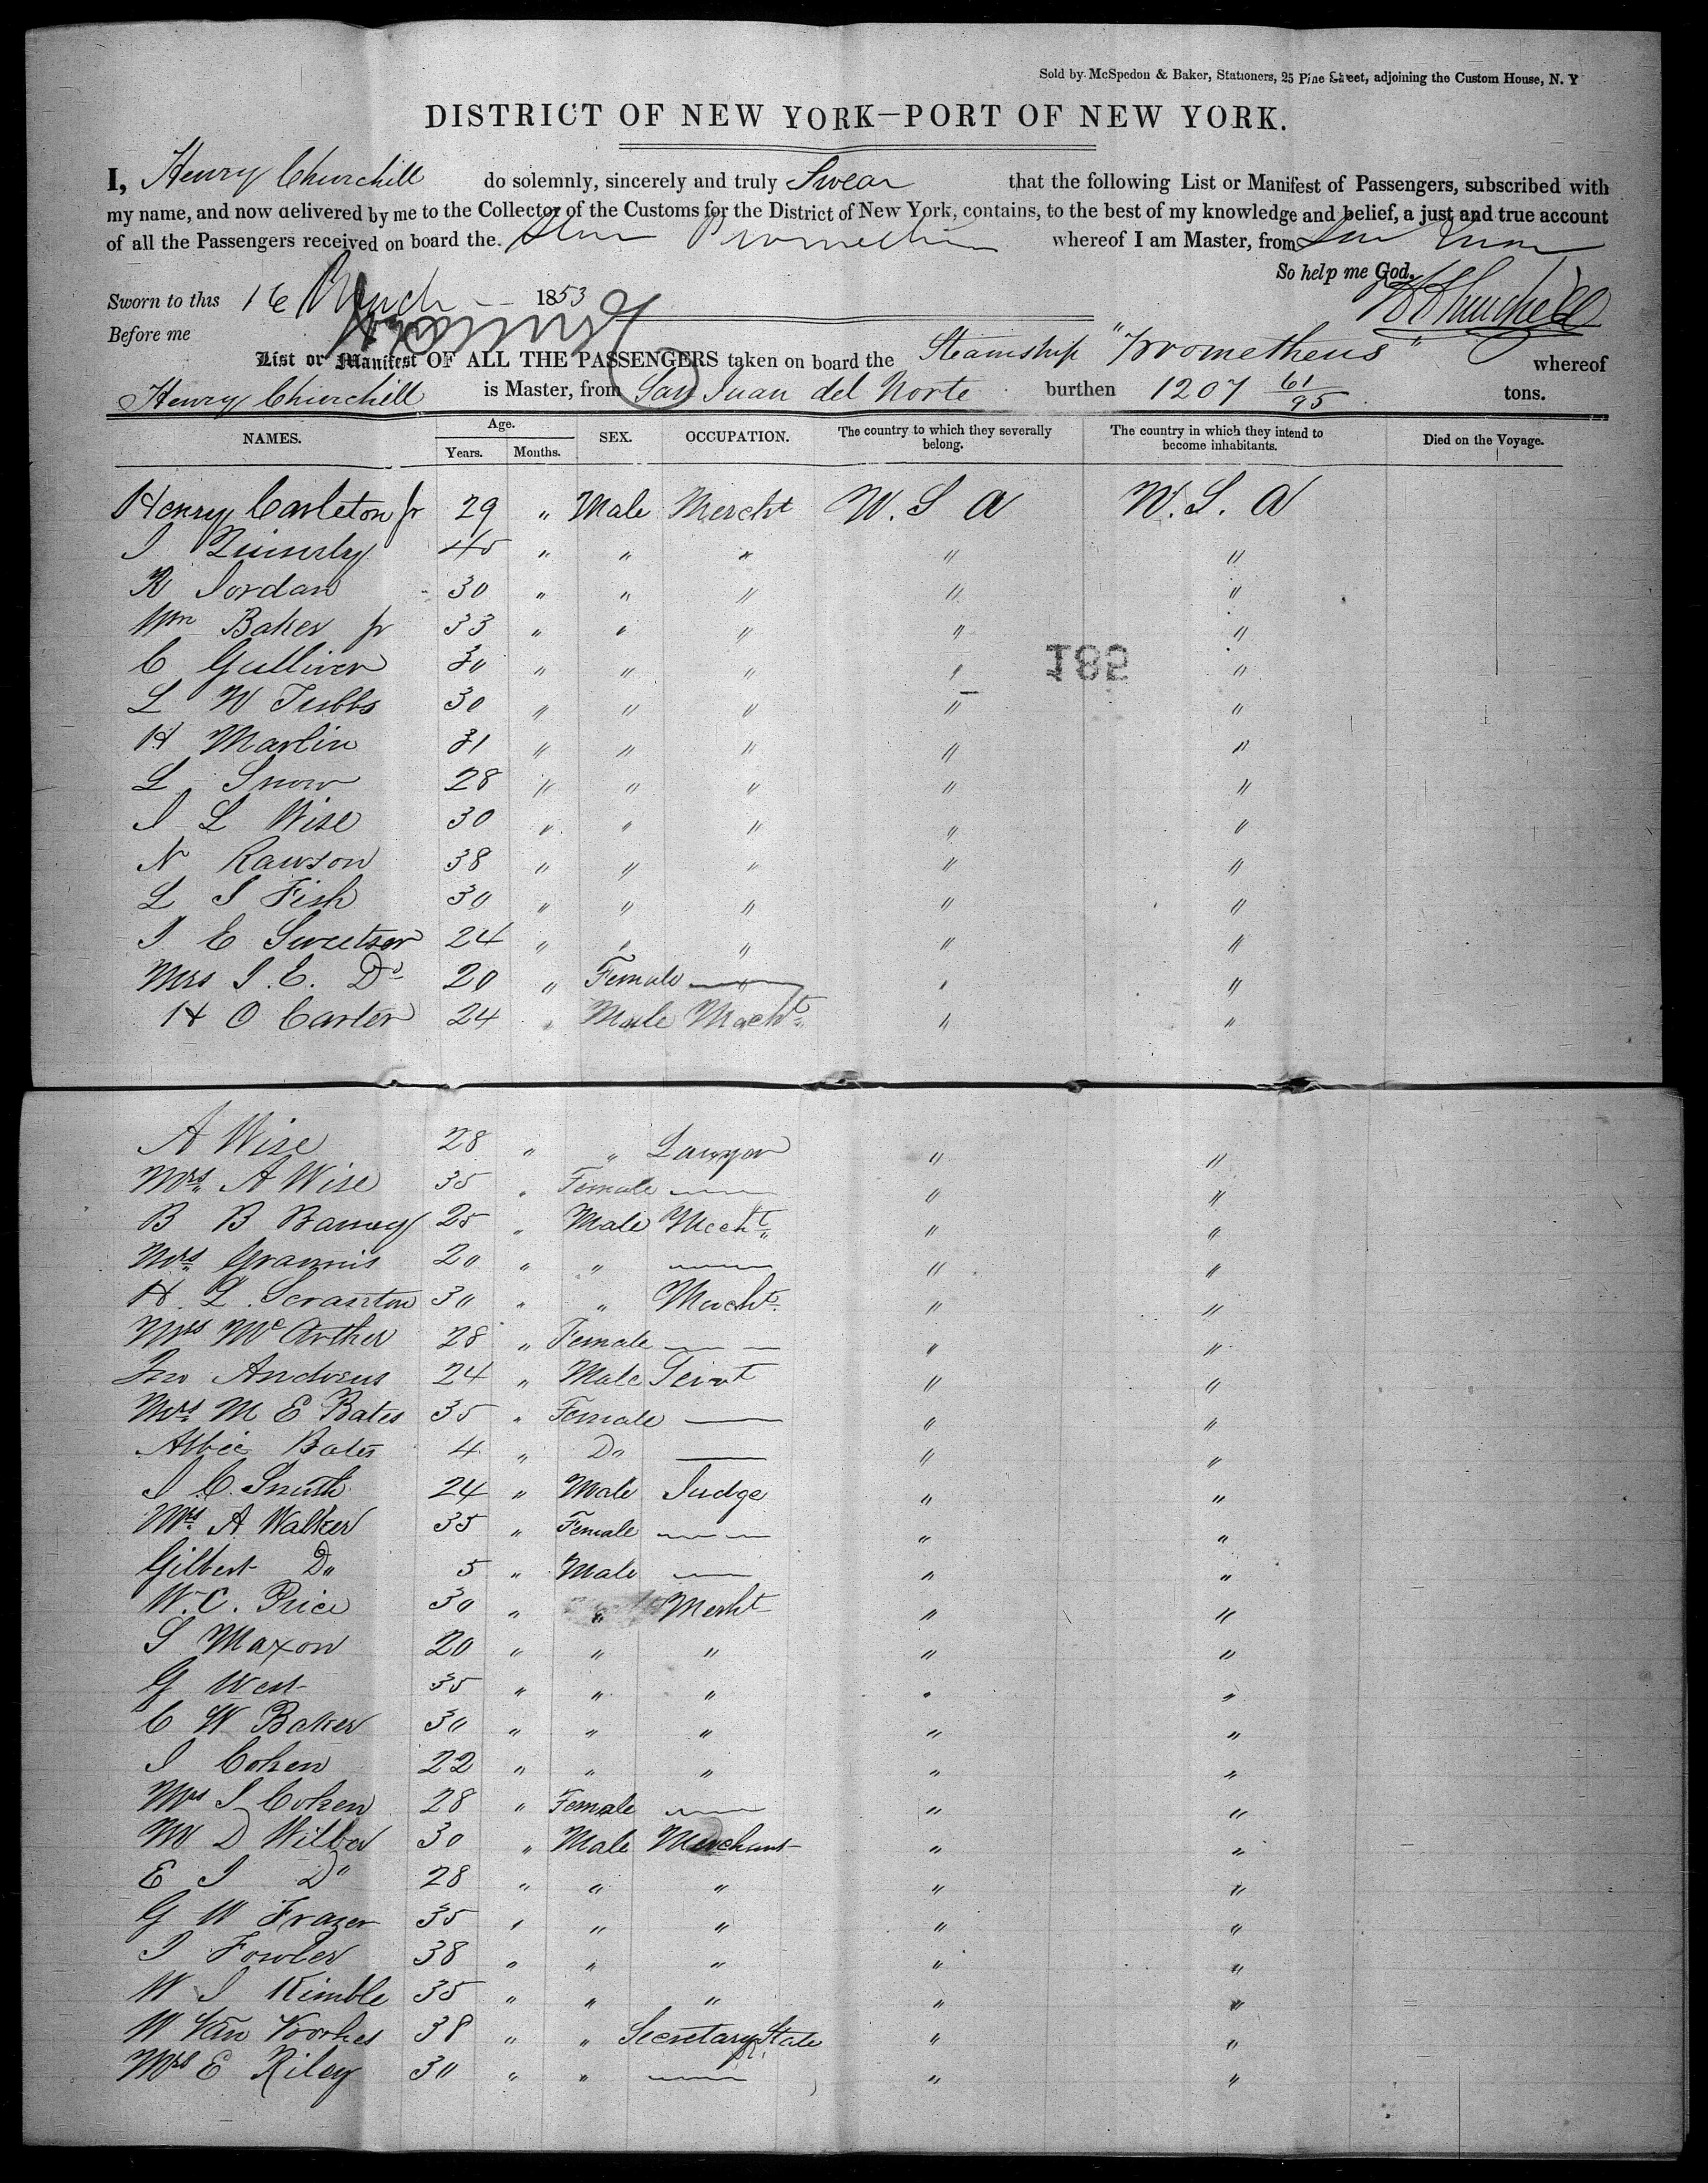 Sold by McSpedon & Baker, Stationers, 25 Pine Street, adjoining the Custom House, N. Y
DISTRICT OF NEW YORK—PORT OF NEW YORK.
I, Henry Churchill do solemnly, sincerely and truly Swear that the following List or Manifest of Passengers, subscribed with
my name, and now delivered by me to the Collector of the Customs for the District of New York, contains, to the best of my knowledge and belief, a just and true account
of all the Passengers received on board the Prometheus whereof I am Master, from San Juan
So help me God.
H Churchill
Sworn to this 16 March 1853
Before me
List or Manifest OF ALL THE PASSENGERS taken on board the Steamship "Prometheus" whereof
Henry Churchill is Master, from San Juan del Norte burthen 1207 61/95 tons.
NAMES. Age. Years. Months. SEX. OCCUPATION. The country to which they severally belong. The country in which they intend to become inhabitants. Died on the Voyage.
Henry Carleton Jr 29 " Male Mercht U. S A U. S. A
J Quimby 45 " " " " "
R Jordan 30 " " " " "
Wm Baker Jr 33 " " " " "
C Gulliver 30 " " " " "
185
L W Tubbs 30 " " " " "
H Marlin 31 " " " " "
L Snow 28 " " " " "
J L Wise 30 " " " " "
N Rawson 38 " " " " "
L J Fish 30 " " " " "
J E Sweetser 24 " " " " "
Mrs J. E. Do 20 " Female — " "
H O Carter 24 " Male Mercht " "
A Wise 28 " " Lawyer " "
Mrs A Wise 35 " Female — " "
B B Barney 25 " Male Mercht " "
Mrs Grannis 20 " " — " "
H. L. Scranton 30 " " Mercht " "
Mrs McArther 28 " Female — " "
Jno Andrews 24 " Male Servt " "
Mrs M E Bates 35 " Female — " "
Abbie Bates 4 " Do — " "
J C. Smith 24 " Male Judge " "
Mrs A Walker 35 " Female — " "
Gilbert Do 5 " Male — " "
W. C. Price 30 " " Mercht " "
S Maxon 20 " " " " "
G West 35 " " " " "
C W Baker 30 " " " " "
J Cohen 22 " " " " "
Mrs J Cohen 28 " Female — " "
W D Wilber 30 " Male Merchant " "
E J Do 28 " " " " "
G W Frazer 35 " " " " "
J Fowler 38 " " " " "
W J Kimble 35 " " " " "
W Van Voorhes 38 " " Secretary State " "
Mrs E Riley 30 " " — " "